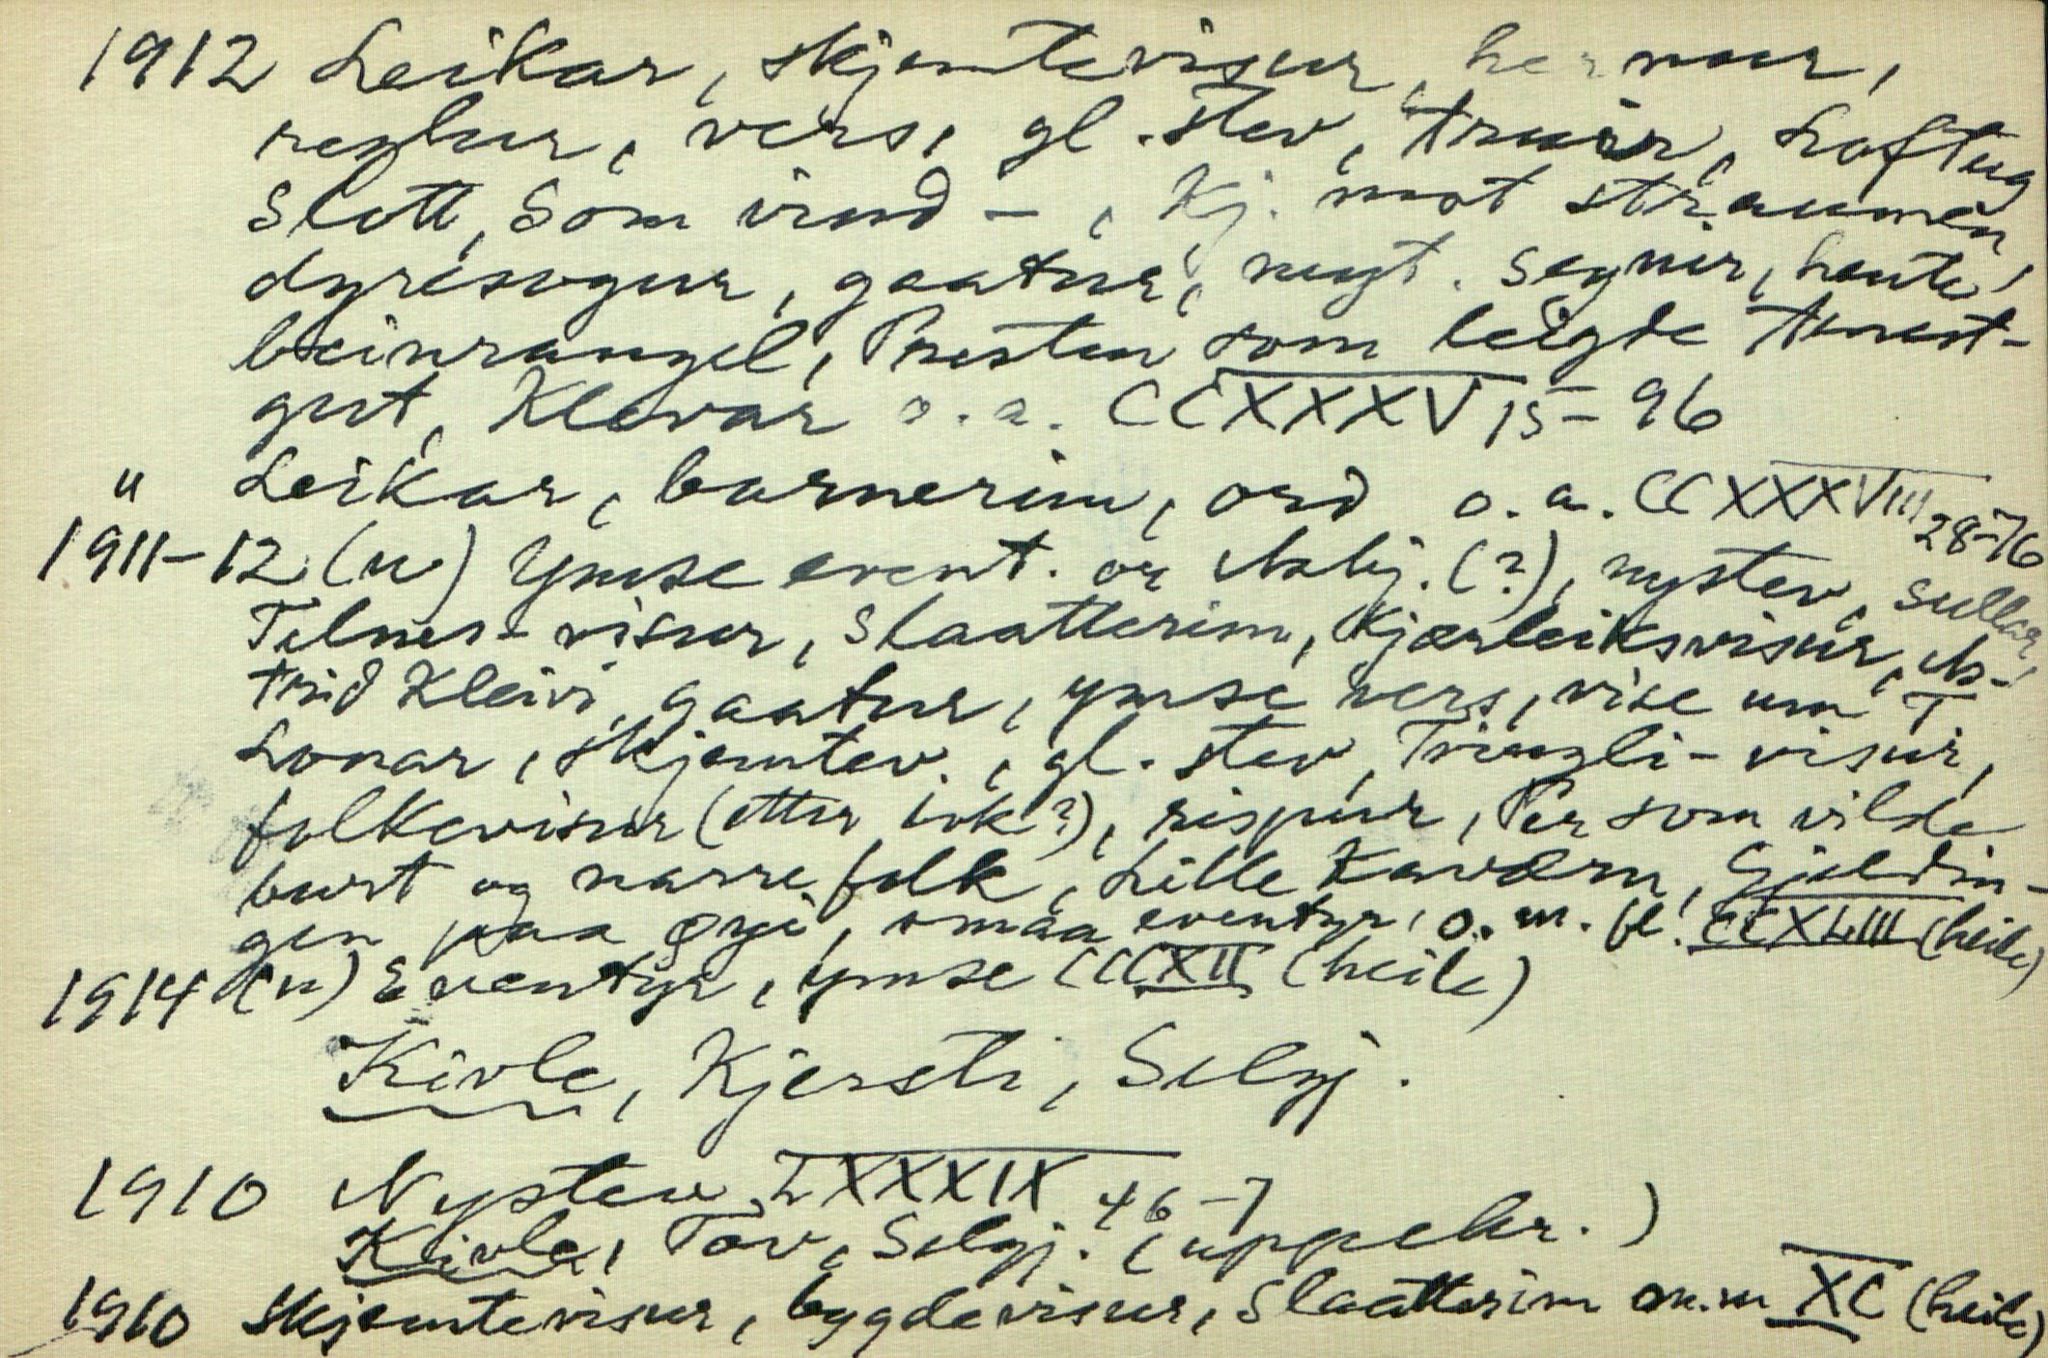 1912 Leikar, skjemtevisur, hermur,
reglur, vers, gl. stev, truir, Loftug
Slott, Som vind -, Kj. mot straumen,
dyresogur, gaatur, mgt. segner, hente
beinrangel, Presten som leigde tenest-
gut, Klevar o.a. CCXXXV 15-96
" Leikar, barnerim, ord o.a. CCXXXVIII 28-76
1911-12 (u) Ymse event. or Asbj. (?), nystev, sullar,
Telnes-visur, Slaatterim, Kjærleiksvisur, As-
trid Kleivi, gaatur, ymse vers, vise um T.
Lonar, skjemtev., gl. stev, Tringli-visur,
folkevisur (etter bok?), rispur, Per som vilde
burt og narre folk, Lille Kavørn, Gjeldin-
gen paa Øyi, smaa eventyr, o.m.fl. CCXLIII (heile)
1914 (u) Eventyr, ymse CCCXII (heile)
Kivle, Kjersti, Selgj.
1910 Nystev LXXXIX 46-7
Kivle, Tov, Selgj. (uppskr.)
1910 Skjemtevisur, bygdevisur, Slaatterim m.m XC (heile)